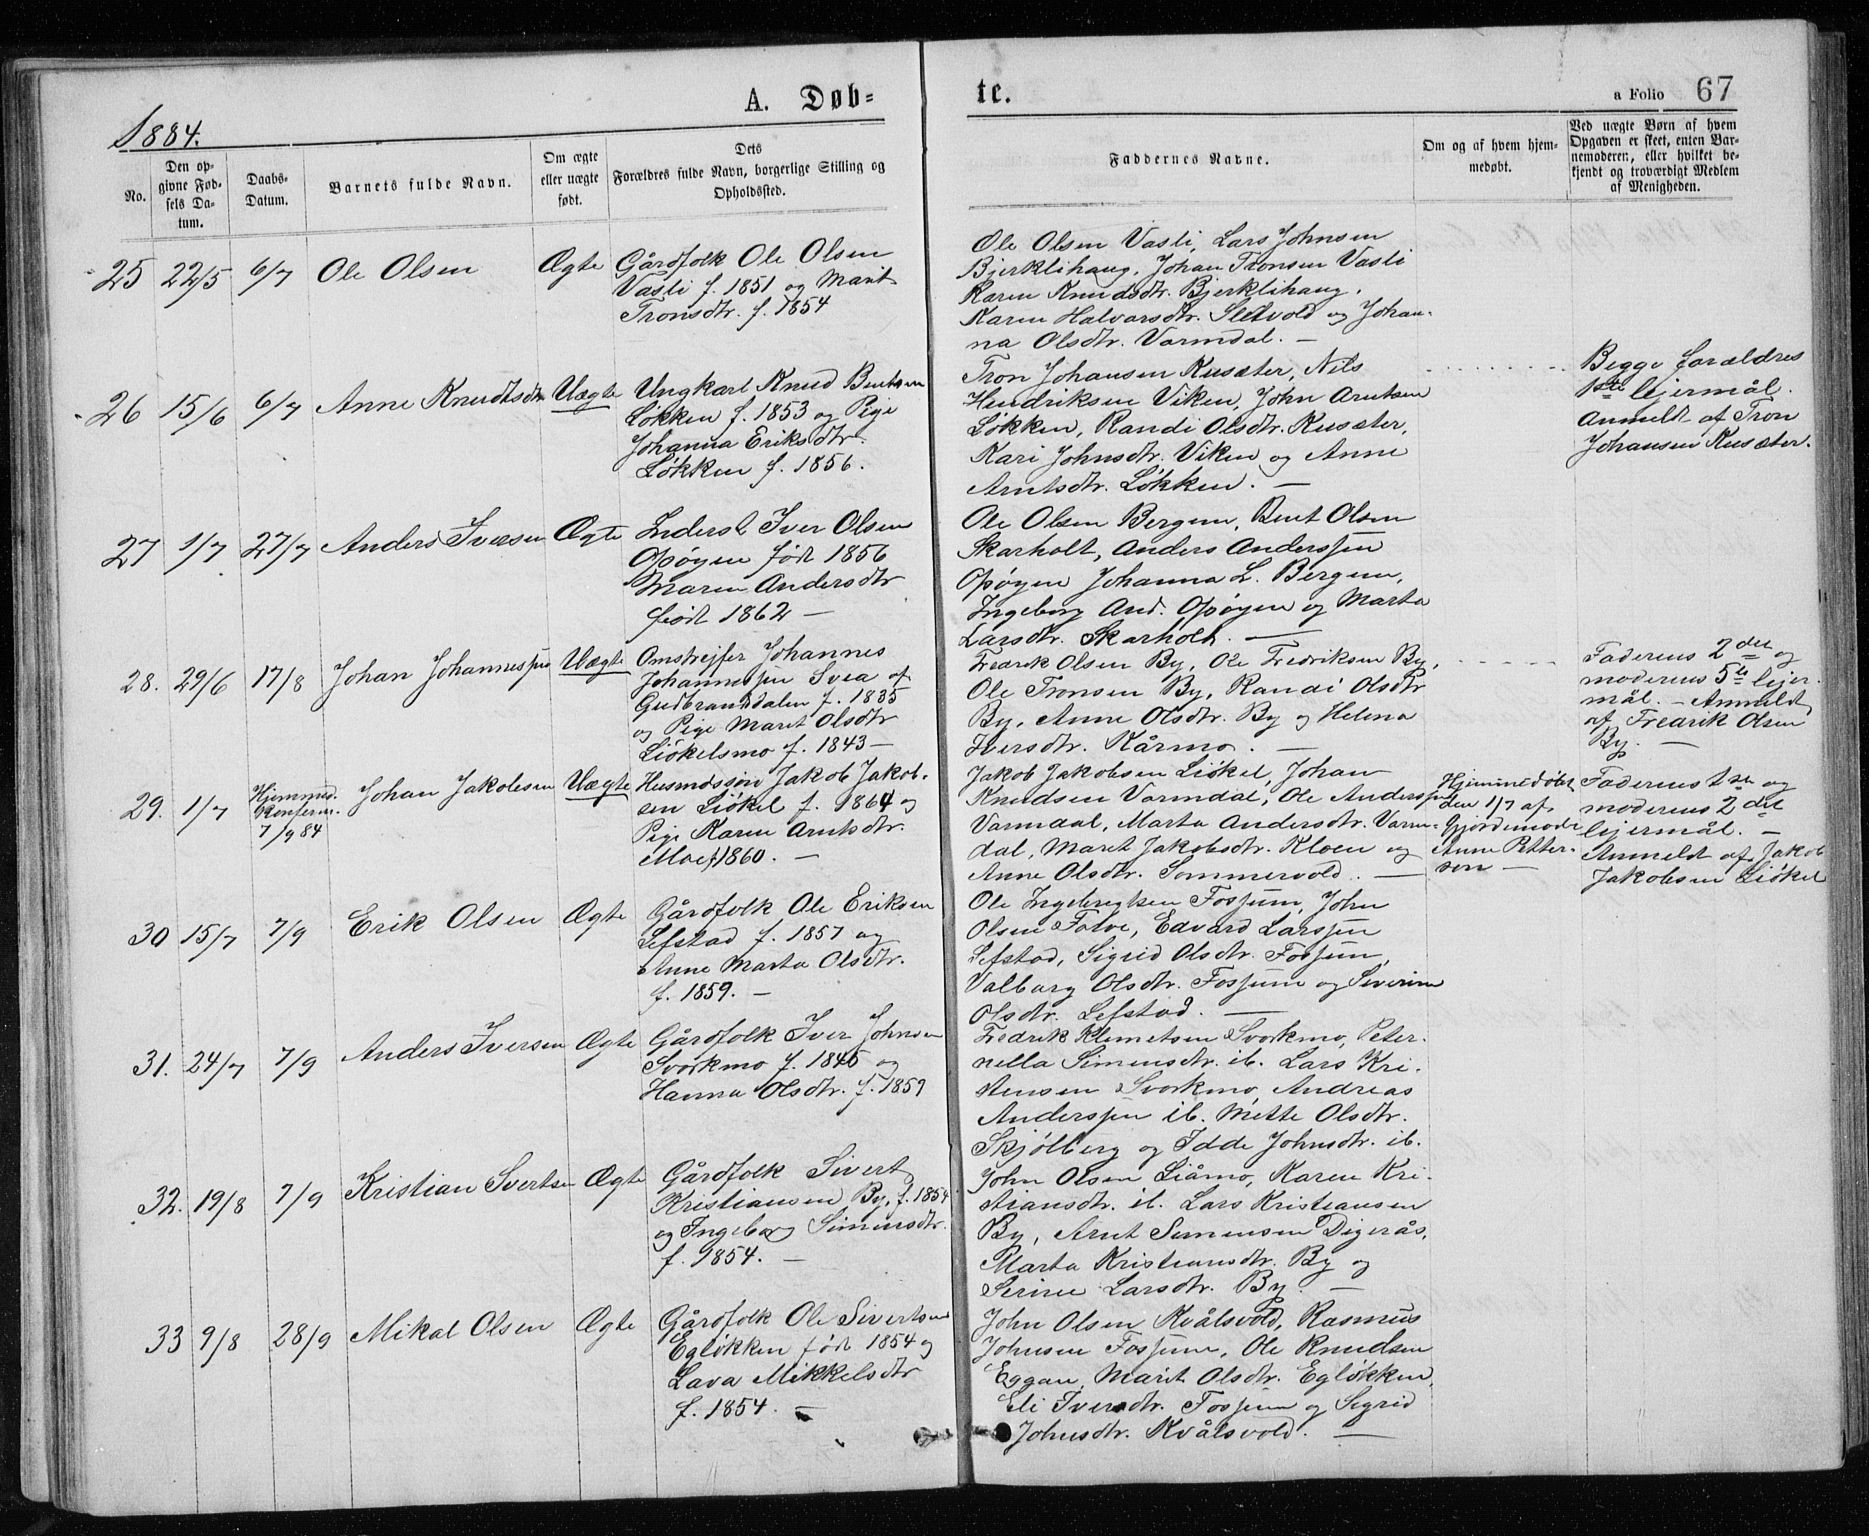 1884.
A. Døb=
te.
a Folio 67
No.
Den op-
givne Fød-
sels Da-
tum.
Daabs-
Datum.
Barnets fulde Navn.
Om ægte
eller uægte
født.
Dets
Forældres fulde Navn, borgerlige Stilling og
Opholdssted.
Faddernes Navne.
Om og af hvem hjem-
medøbt.
Ved uægte Børn af hvem
Opgaven er skeet, enten Bar-
nemoderen, eller hvilket be-
kjendt og troværdigt Medlem
af Menigheden.
25 22/5 6/7 Ole Olsen Ægte
Gårdfolk Ole Olsen
Vasli f. 1851 og Marit
Tronsdtr. f. 1854
Ole Olsen Vasli, Lars Johnsen
Bjerklihaug, Johan Tronsen Vasli
Karen Knudsdtr. Bjerklihaug,
Karen Halvarsdtr. Sletvold og Johan-
na Olsdtr. Varmdal. —
26 15/6 6/7 Anne Knudtsdtr Uægte
Ungkarl Knud Bentsen
Løkken f. 1853 og Pige
Johanna Eriksdtr.
Løkken f. 1856.
Tron Johansen Kusæter, Nils
Hendriksen Viken, John Arntsen
Løkken, Randi Olsdtr. Kusæter,
Kari Johnsdtr. Viken og Anne
Arntsdtr. Løkken. —
Begge forældres
1ste lejermål.
Anmeldt af Tron
Johansen Kusæter.
27 1/7 27/7 Anders Iversen Ægte
Inderst Iver Olsen
Opøyen født 1856
Maren Andersdtr
født 1862 —
Ole Olsen Bergum, Bent Olsen
Skarholt, Anders Anderssen
Opøyen Johanna L. Bergum,
Ingeborg And. Opøyen og Marta
Larsdtr. Skarholt. —
28. 29/6 17/8 Johan Johannessen Uægte
Omstrejfer Johannes
Johannessen Svea af
Gudbrandsdalen f. 1835
og Pige Maret Olsdtr
Liøkelsmo f. 1843 —
Fredrik Olsen By, Ole Fredriksen By,
Ole Tronsen By, Randi Olsdtr
By, Anne Olsdtr. By og Helena
Iversdtr. Kårmo. —
Faderens 2den og
moderens 5te lejer-
mål. — Anmeldt
af Fredrik Olsen
By. —
29. 1/7 Hjemmed.
Konferm.
7/9 84
Johan Jakobsen Uægte
Husmdssøn Jakob Jakob-
sen Liøkel f. 1864 og
Pige Karen Arntsdtr.
Moe f 1860. —
Jakob Jakobsen Liøkel, Johan
Knudsen Varmdal, Ole Anderssen
Varmdal, Marta Andersdtr. Varm-
dal, Maret Jakobsdtr. Kloen og
Anne Olsdtr. Sommervold. —
Hjemmedøbt
den 1/7 af
Gjordemoder
Anne Petter-
sen —
Faderens 1ste og
moderens 2det
lejermål. —
Anmeldt af Jakob
Jakobsen Liøkel
30 15/7 7/9 Erik Olsen Ægte
Gårdfolk Ole Eriksen
Lefstad f. 1857 og
Anne Marta Olsdtr.
f. 1859. —
Ole Ingebrigtsen Fossum, John
Olsen Folve, Edvard Larssen
Lefstad, Sigrid Olsdtr. Fossum,
Valborg Olsdtr. Fossum og Siverine
Olsdtr. Lefstad. —
31. 24/7 7/9 Anders Iversen Ægte
Gårdfolk Iver Johnsen
Svorkmo f. 1845 og
Hanna Olsdtr. f. 1859
Fredrik Klemetsen Svorkmo, Peter-
nella Simensdtr. ib. Lars Kri-
stensen Svorkmo, Andreas
Anderssen ib. Mette Olsdtr.
Skjølberg og Idde Johnsdtr. ib.
32. 19/8 7/9 Kristian Svertsen Ægte
Gårdfolk Sivert
Kristiansen By, f. 1854
og Ingeborg Simensdtr.
f. 1854. —
John Olsen Liåmo, Karen Kri-
stiansdtr. ib. Lars Kristiansen
By, Arnt Simensen Digerås,
Marta Kristiansdtr. By og
Serine Larsdtr. By. —
33 9/8 28/9 Mikal Olsen Ægte
Gårdfolk Ole Sivertsen
Egløkken født 1854 og
Lava Mikkelsdtr
f. 1854. —
John Olsen Kvålsvold, Rasmus
Johnsen Fossum, Ole Knudsen
Eggan, Marit Olsdtr. Egløkken,
Eli Iversdtr. Fossum og Sigrid
Johnsdtr. Kvålsvold. —